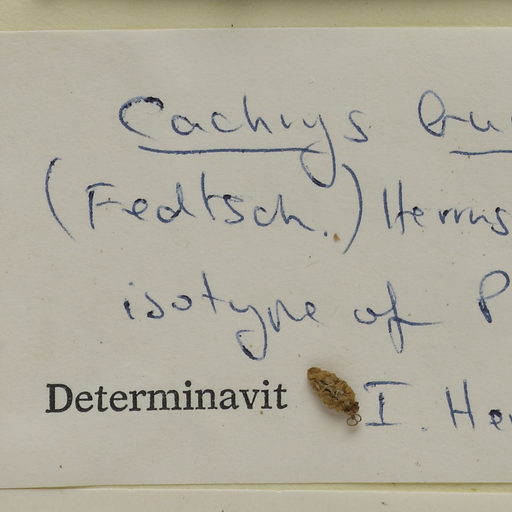 Cachrys
(Fedtsch.) Herrns
isotype of P
Determinavit I. Her